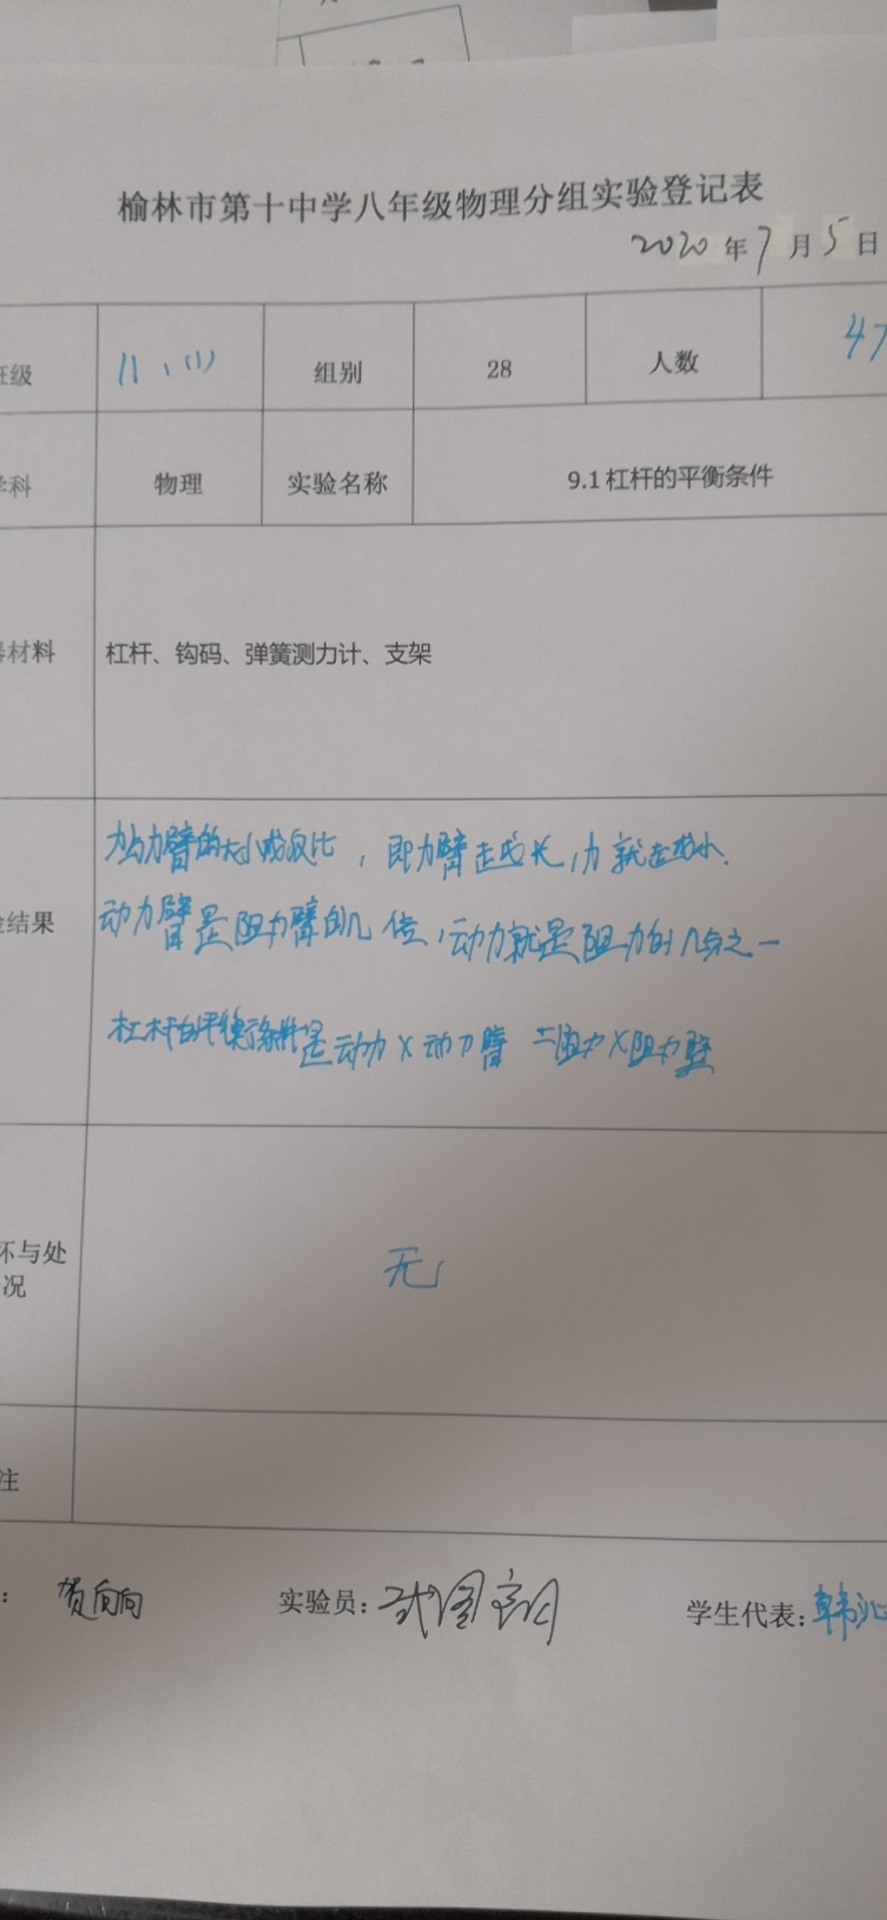 榆林市第十中学八年级物理分组实验登记表
2020年7月5日
班级 八、(1) 组别 28 人数 47
学科 物理 实验名称 9.1杠杆的平衡条件
器材料 杠杆、钩码、弹簧测力计、支架
力与力臂的大小成反比，即力臂越长，力就越小.
动力臂是阻力臂的几倍，动力就是阻力的几分之一
验结果
杠杆的平衡条件是动力×动力臂=阻力×阻力臂
坏与处
况
无
注
: 贺向向 实验员: 学生代表: 韩沁